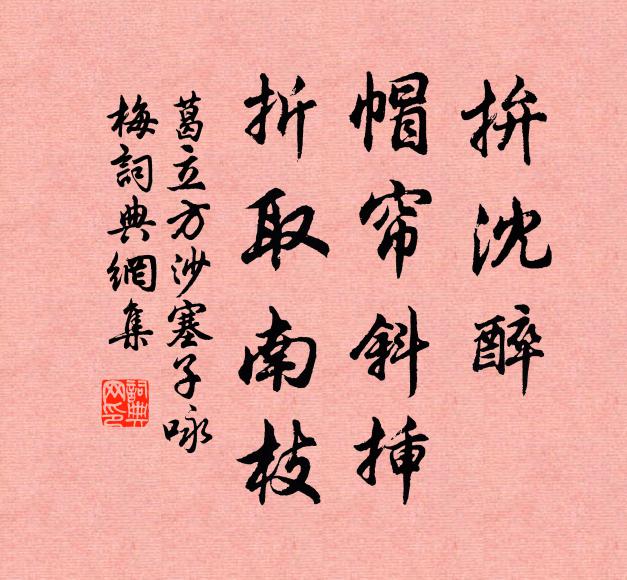 拚沈醉
帽帘斜挿
折取南枝
葛立方沙塞子咏
梅詞典網集
詞典網印